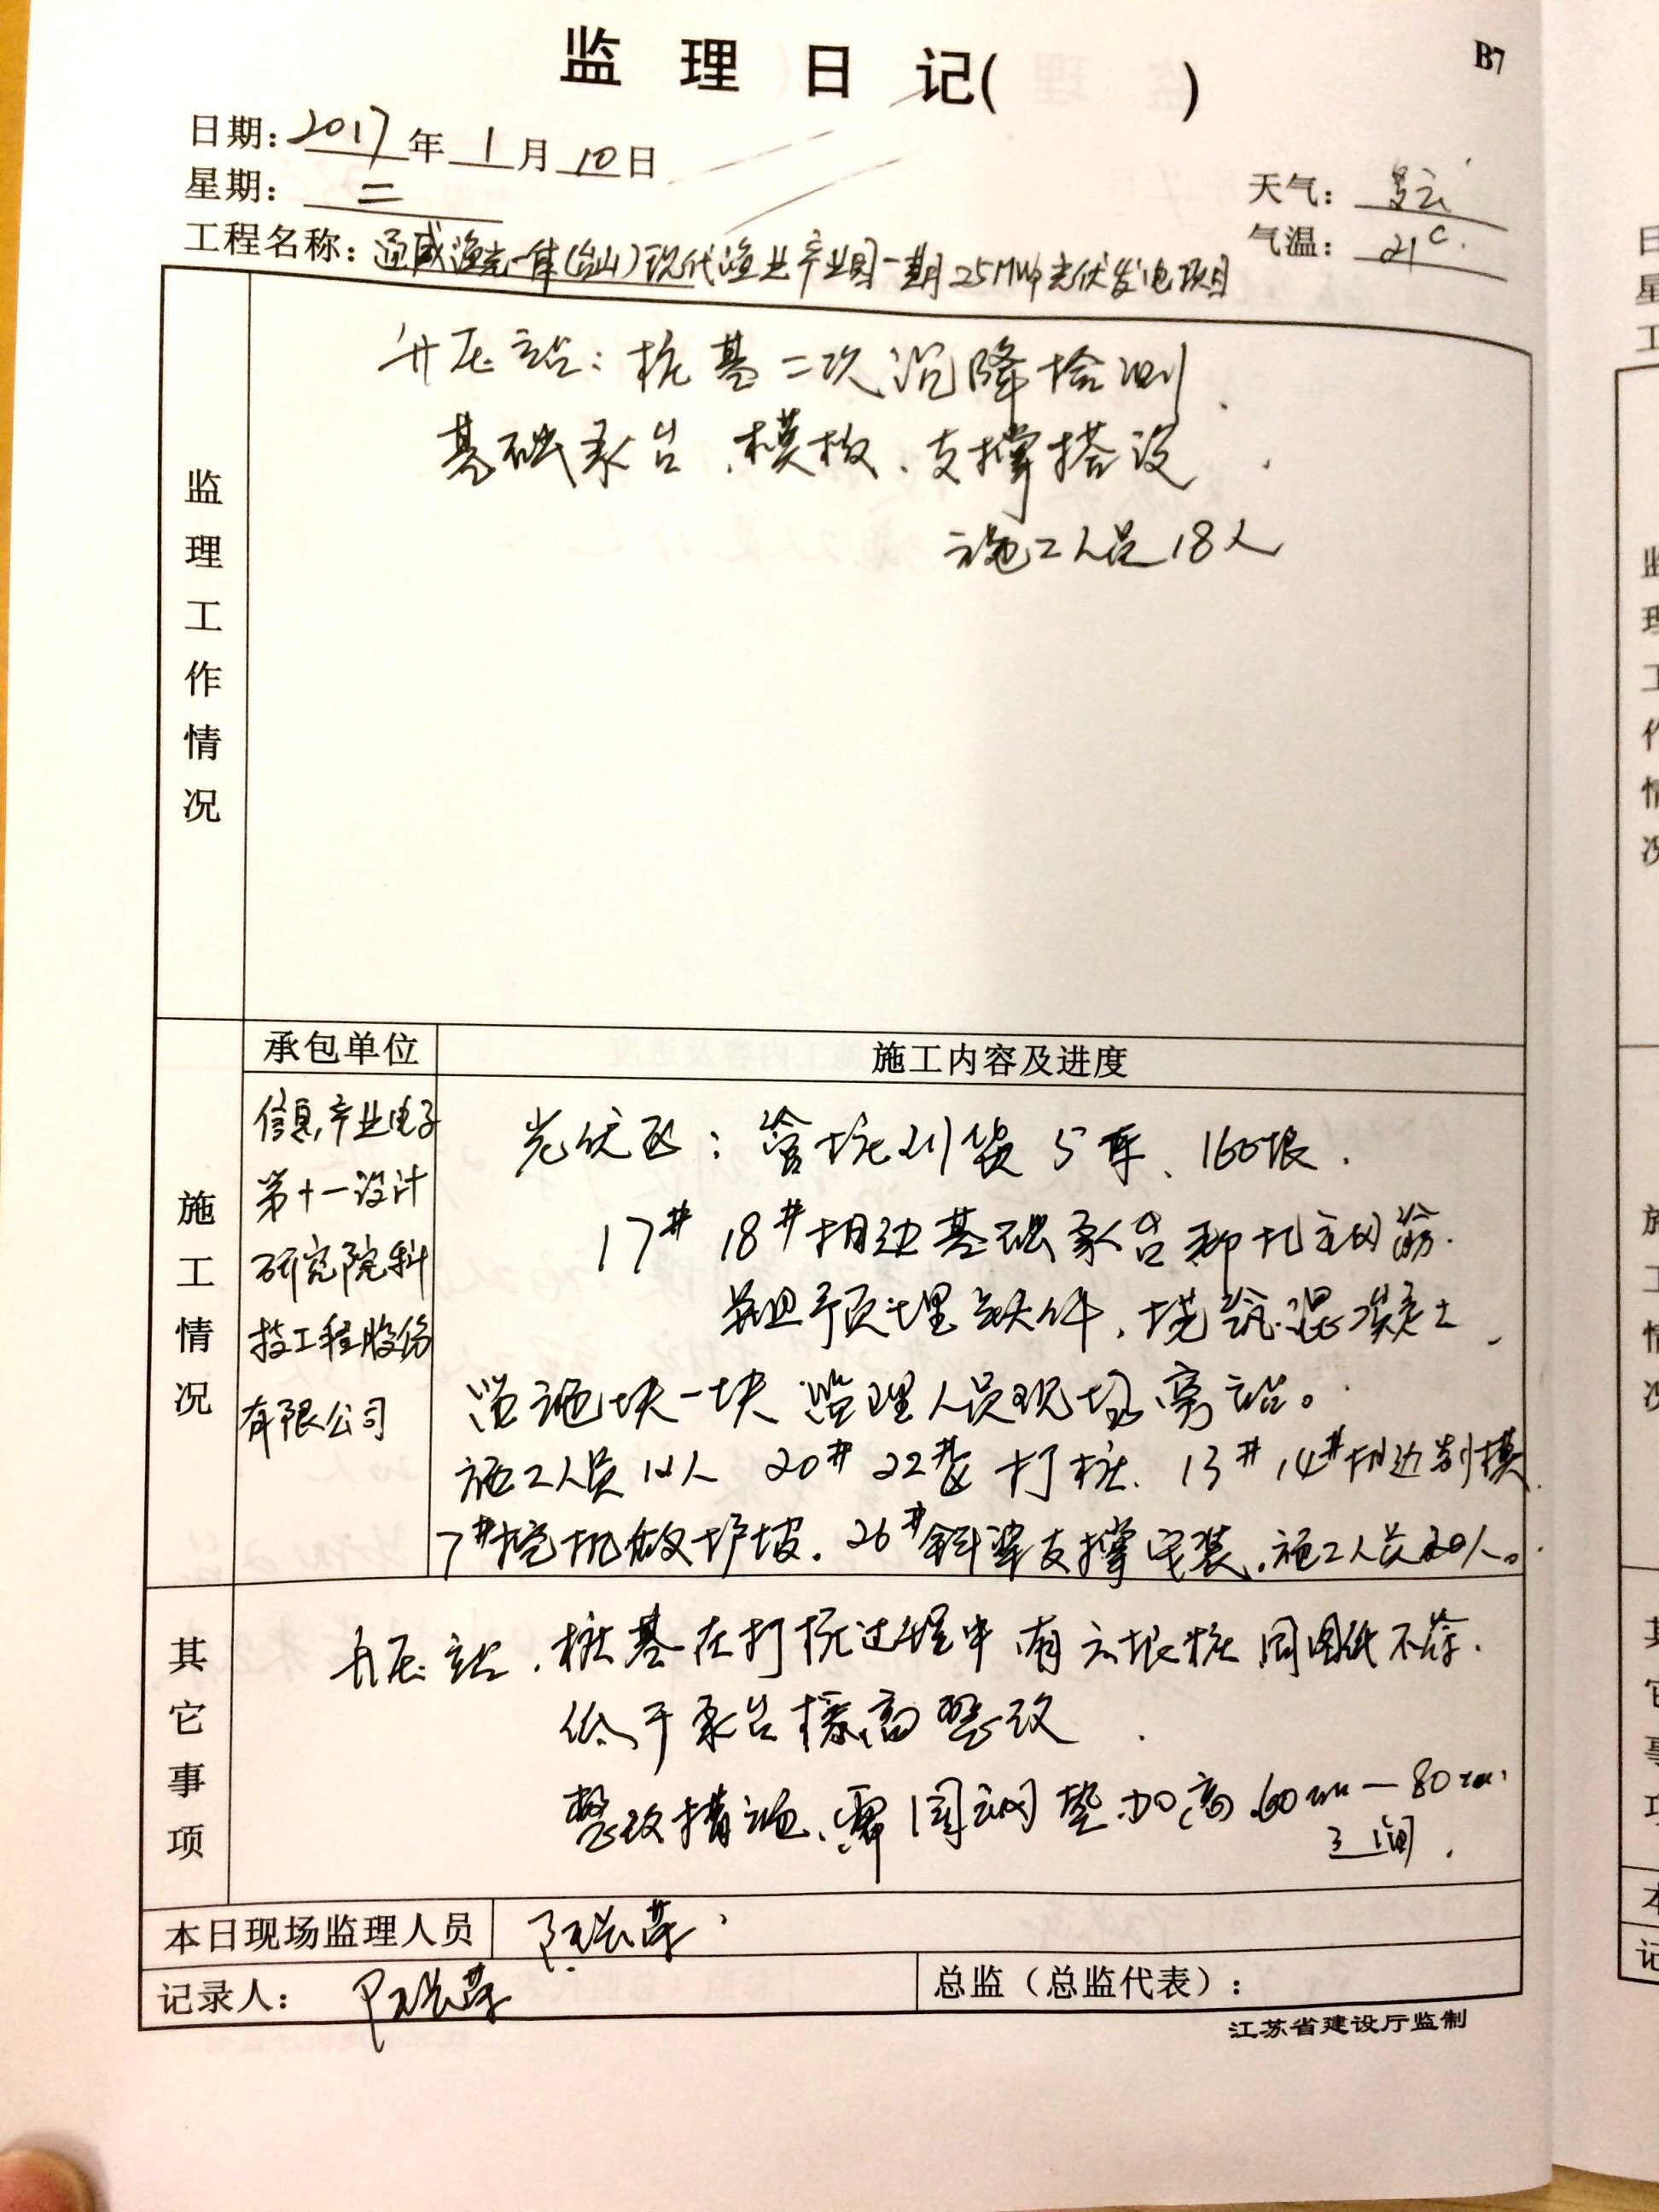 监理日记( )
B7
日期: 2017年1月10日
星期: 二
天气: 多云
工程名称: 通威渔光一体(台山)现代渔业产业园一期25MWp光伏发电项目
气温: 21℃.
监理工作情况
升压站: 桩基二次沉降检测.
基础承台、模板、支撑搭设.
施工人员18人
承包单位
施工内容及进度
施工情况
信息产业电子
第十一设计
研究院科
技工程股份
有限公司
光伏区: 管桩到货5车、160根.
17# 18#相边基础承台绑扎主网筋.
预埋铁件、浇筑混凝土、
施块一块 监理人员现场旁站。
施工人员12人 20# 22# 打桩. 13# 14#相边制模.
7#挖机做护坡. 26#斜梁支撑安装. 施工人员20人。
其它事项
升压站、桩基在打桩过程中有六根桩同图纸不符.
低于承台标高整改.
整改措施、需 垫加高60cm—80cm
之间.
本日现场监理人员
记录人:
总监（总监代表）:
江苏省建设厅监制